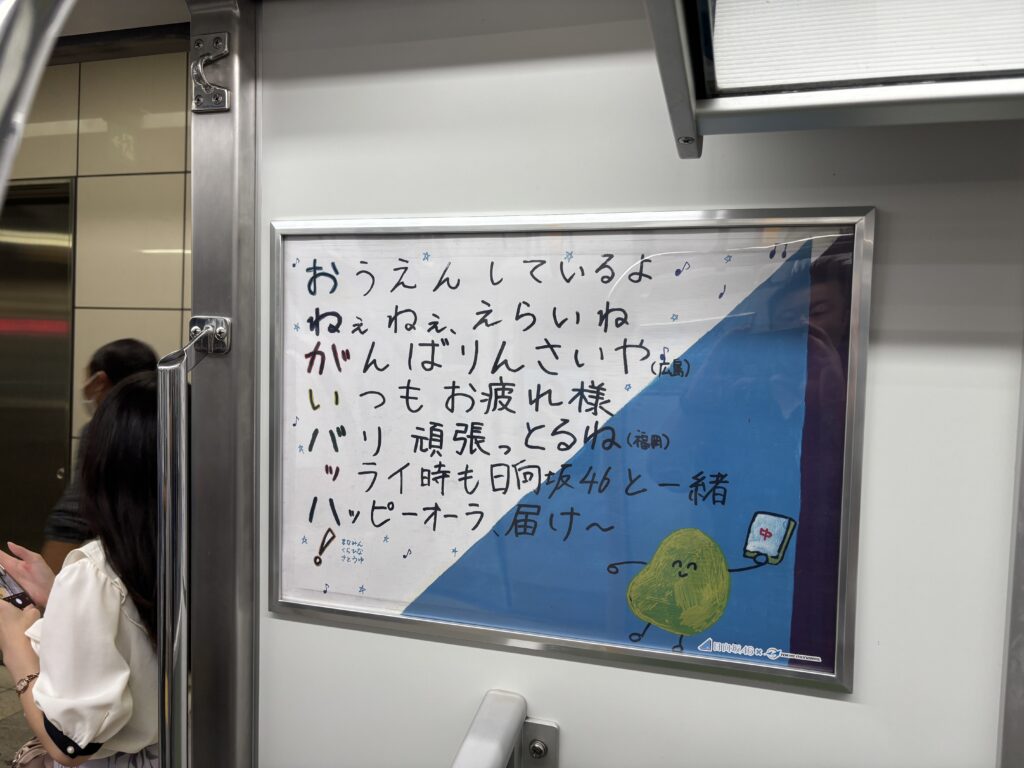 おうえんしているよ
ねぇねぇ、えらいね
がんばりんさいや(広島)
いつもお疲れ様
バリ 頑張っとるね(福岡)
ッライ時も日向坂46と一緒
ハッピーオーラ、届け〜
!
まなみん
くらひな
さとうゆ
中
日向坂46×